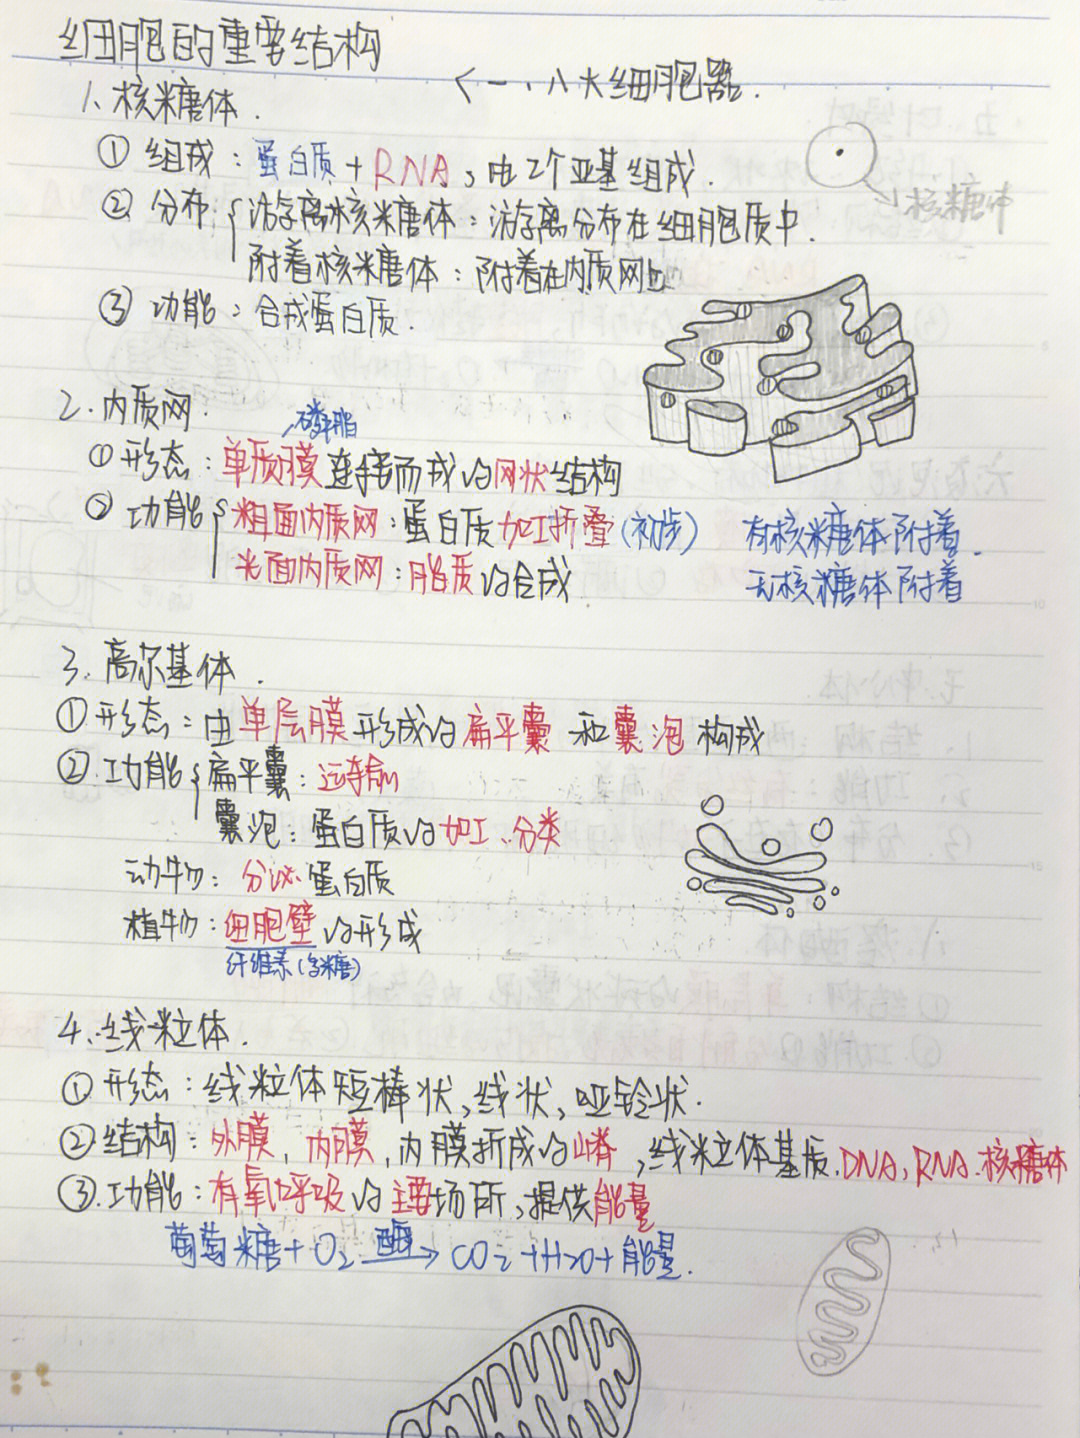 细胞的重要结构
<一、八大细胞器.
1、核糖体.
① 组成：蛋白质+RNA，由2个亚基组成.
核糖体
② 分布：游离核糖体：游离分布在细胞质中.
附着核糖体：附着在内质网上
③ 功能：合成蛋白质.
2.内质网.
磷脂
① 形态：单质膜连接而成的网状结构
② 功能 粗面内质网：蛋白质加工折叠(初步) 有核糖体附着.
光面内质网：脂质的合成 无核糖体附着
3.高尔基体.
① 形态：由单层膜形成的扁平囊和囊泡构成
② 功能 扁平囊：运输
囊泡：蛋白质的加工、分类
动物：分泌蛋白质
植物：细胞壁的形成
纤维素(多糖)
4.线粒体.
① 形态：线粒体短棒状，线状，哑铃状.
② 结构：外膜，内膜，内膜折成的嵴，线粒体基质.DNA，RNA.核糖体
③ 功能：有氧呼吸的主要场所，提供能量
葡萄糖+O₂ 酶→ CO₂+H₂O+能量.